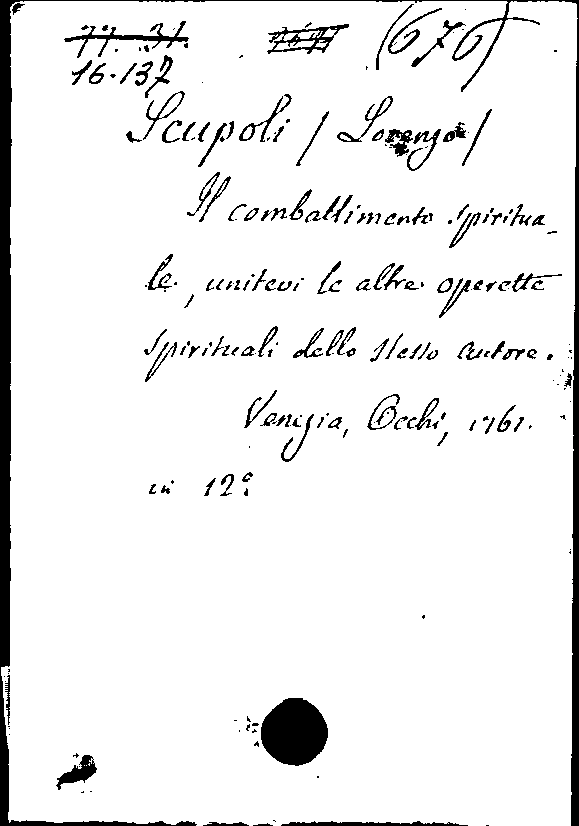 77. 31. (676)
16.137
Scupoli / Lorenzo /
Il combattimento spiritua-
le, unitevi le altre operette
spirituali dello stesso autore.
Venezia, Occhi, 1761.
in 12º